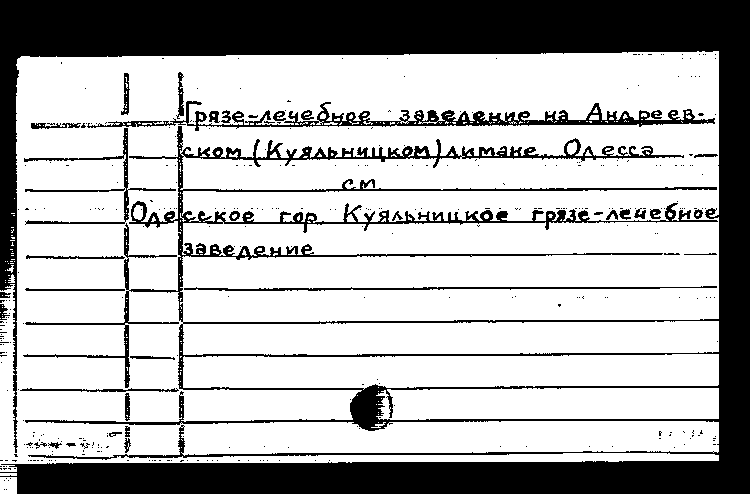 Грязе-лечебное заведение на Андреев-
ском (Куяльницком) лимане. Одесса
см
Одесское гор. Куяльницкое грязе-лечебное
заведение